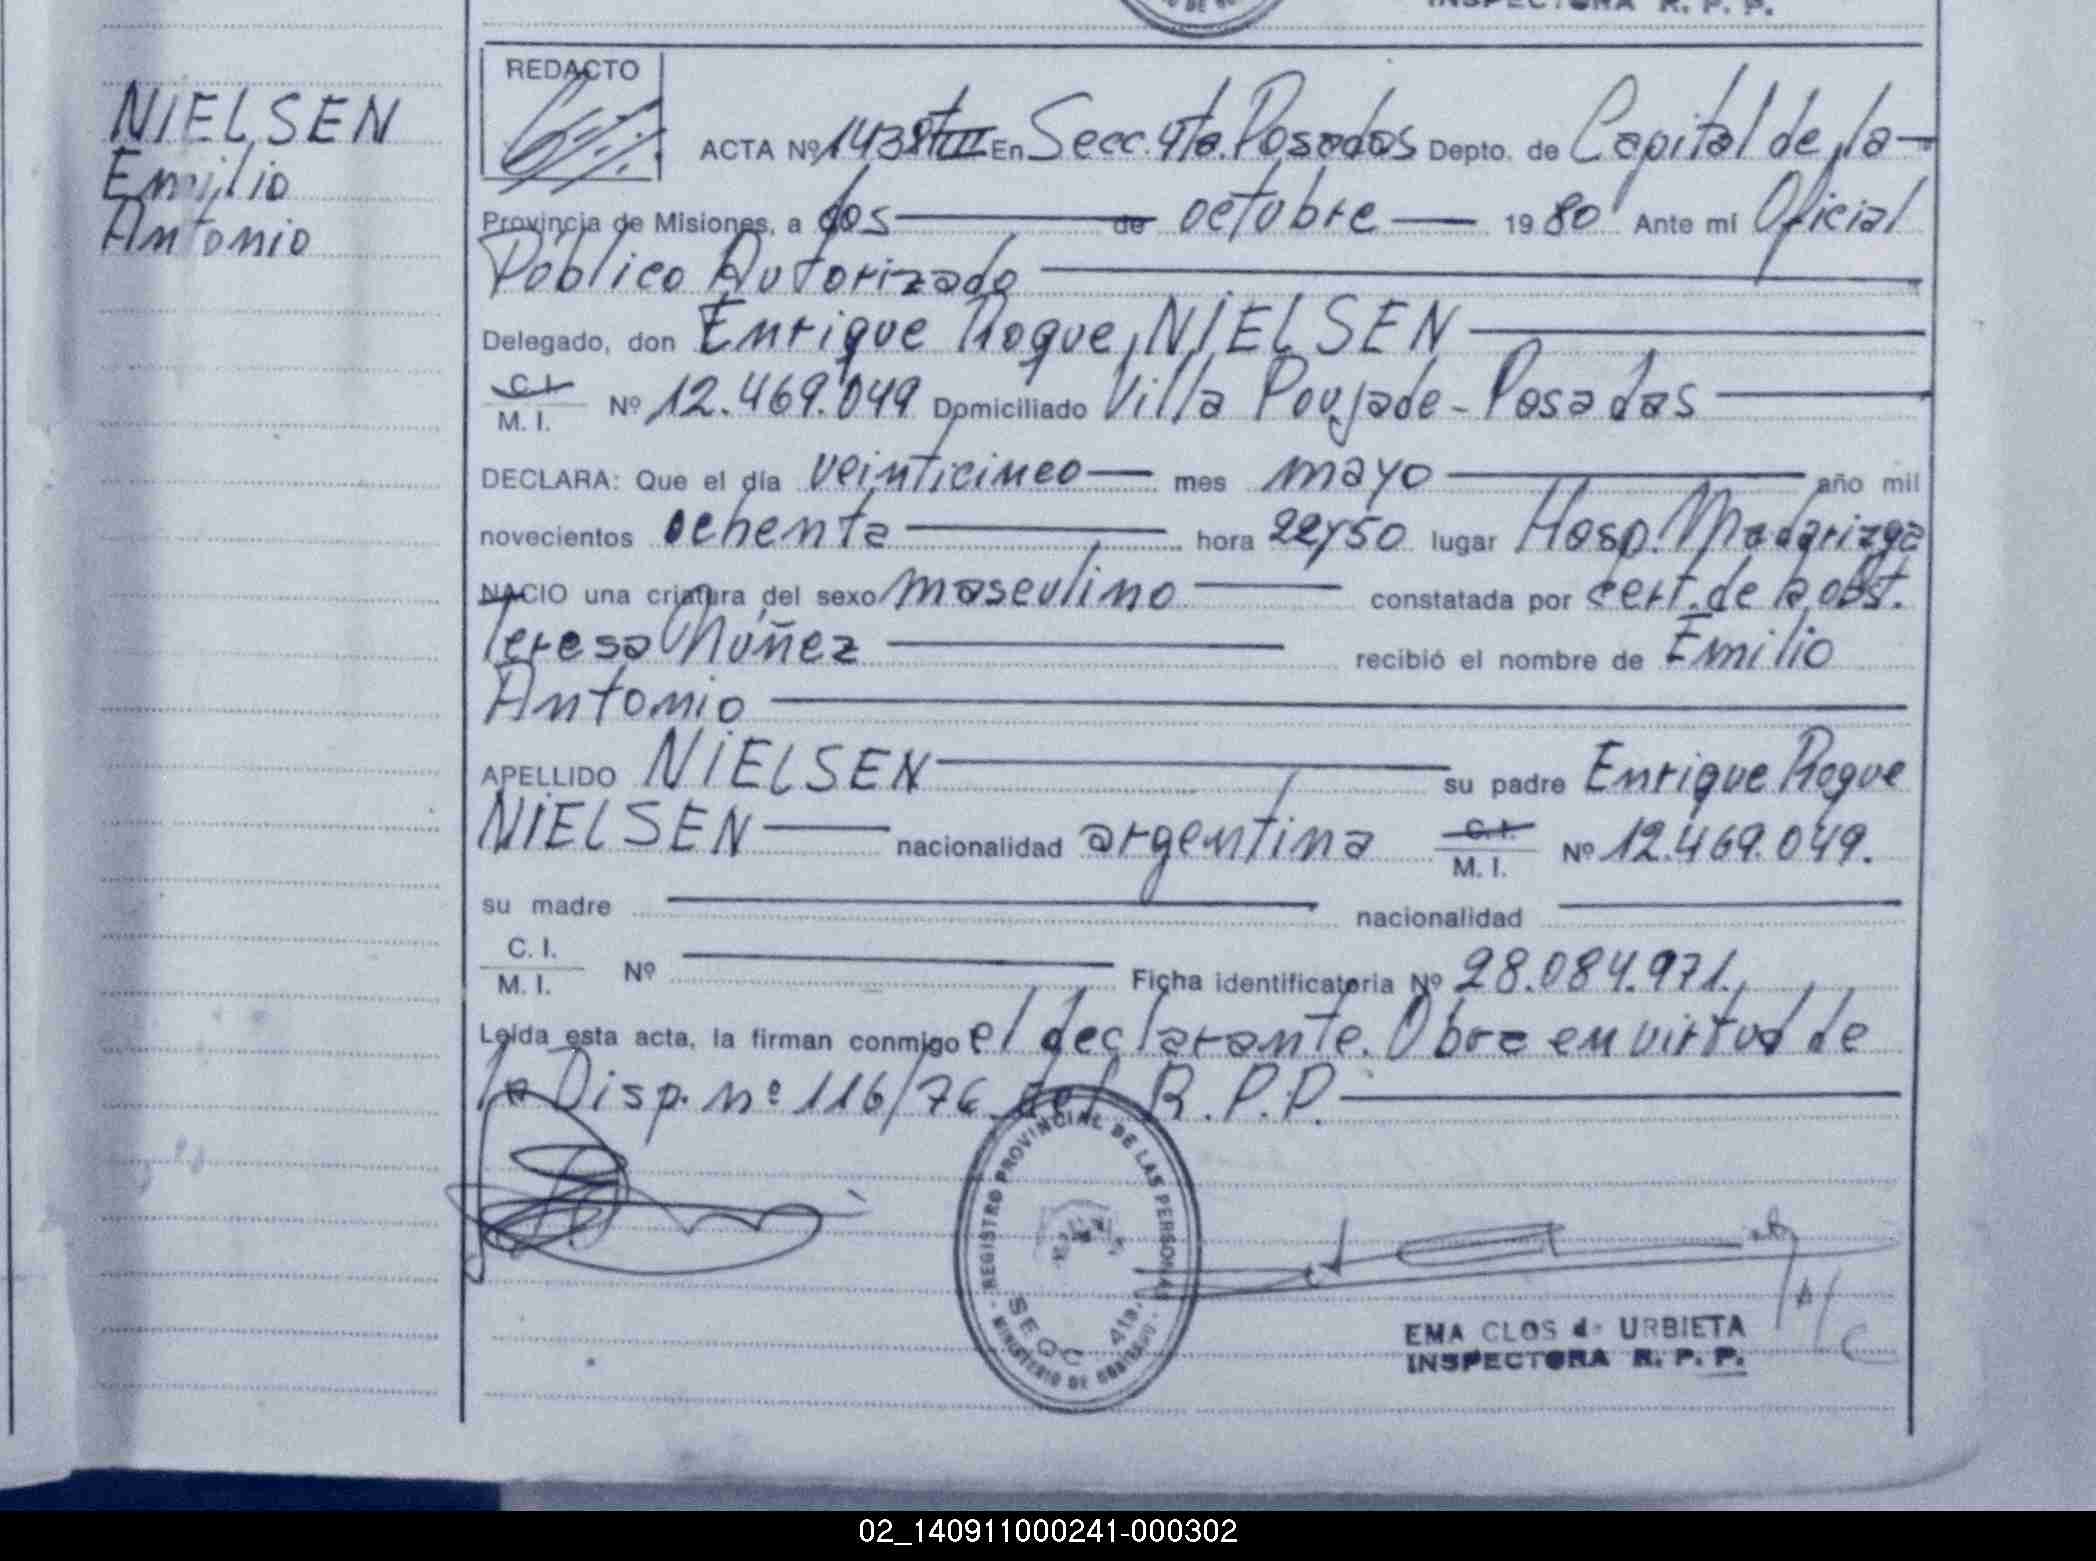 INSPECTORA R. P. P.
NIELSEN
Emilio
Antonio
REDACTO
ACTA Nº 1438 tº III En Secc. 4ta. Posadas Depto. de Capital de la
Provincia de Misiones, a dos de octubre 1980 Ante mí Oficial
Público Autorizado
Delegado, don Enrique Roque NIELSEN
C. I.
M. I. Nº 12.469.049 Domiciliado Villa Poujade - Posadas
DECLARA: Que el día veinticinco mes mayo año mil
novecientos ochenta hora 22y50 lugar Hosp. Madariaga
NACIO una criatura del sexo masculino constatada por cert. de la obst.
Teresa Núñez recibió el nombre de Emilio
Antonio
APELLIDO NIELSEN su padre Enrique Roque
NIELSEN nacionalidad argentina C. I.
M. I. Nº 12.469.049.
su madre nacionalidad
C. I.
M. I. Nº Ficha identificatoria Nº 28.084.971.
Leída esta acta, la firman conmigo el declarante. Obra en virtud de
la Disp. nº 116/76 del R.P.P.
REGISTRO PROVINCIAL DE LAS PERSONAS
SECC 4ta.
MINISTERIO DE GOBIERNO
EMA CLOS de URBIETA
INSPECTORA R. P. P.
02_140911000241-000302